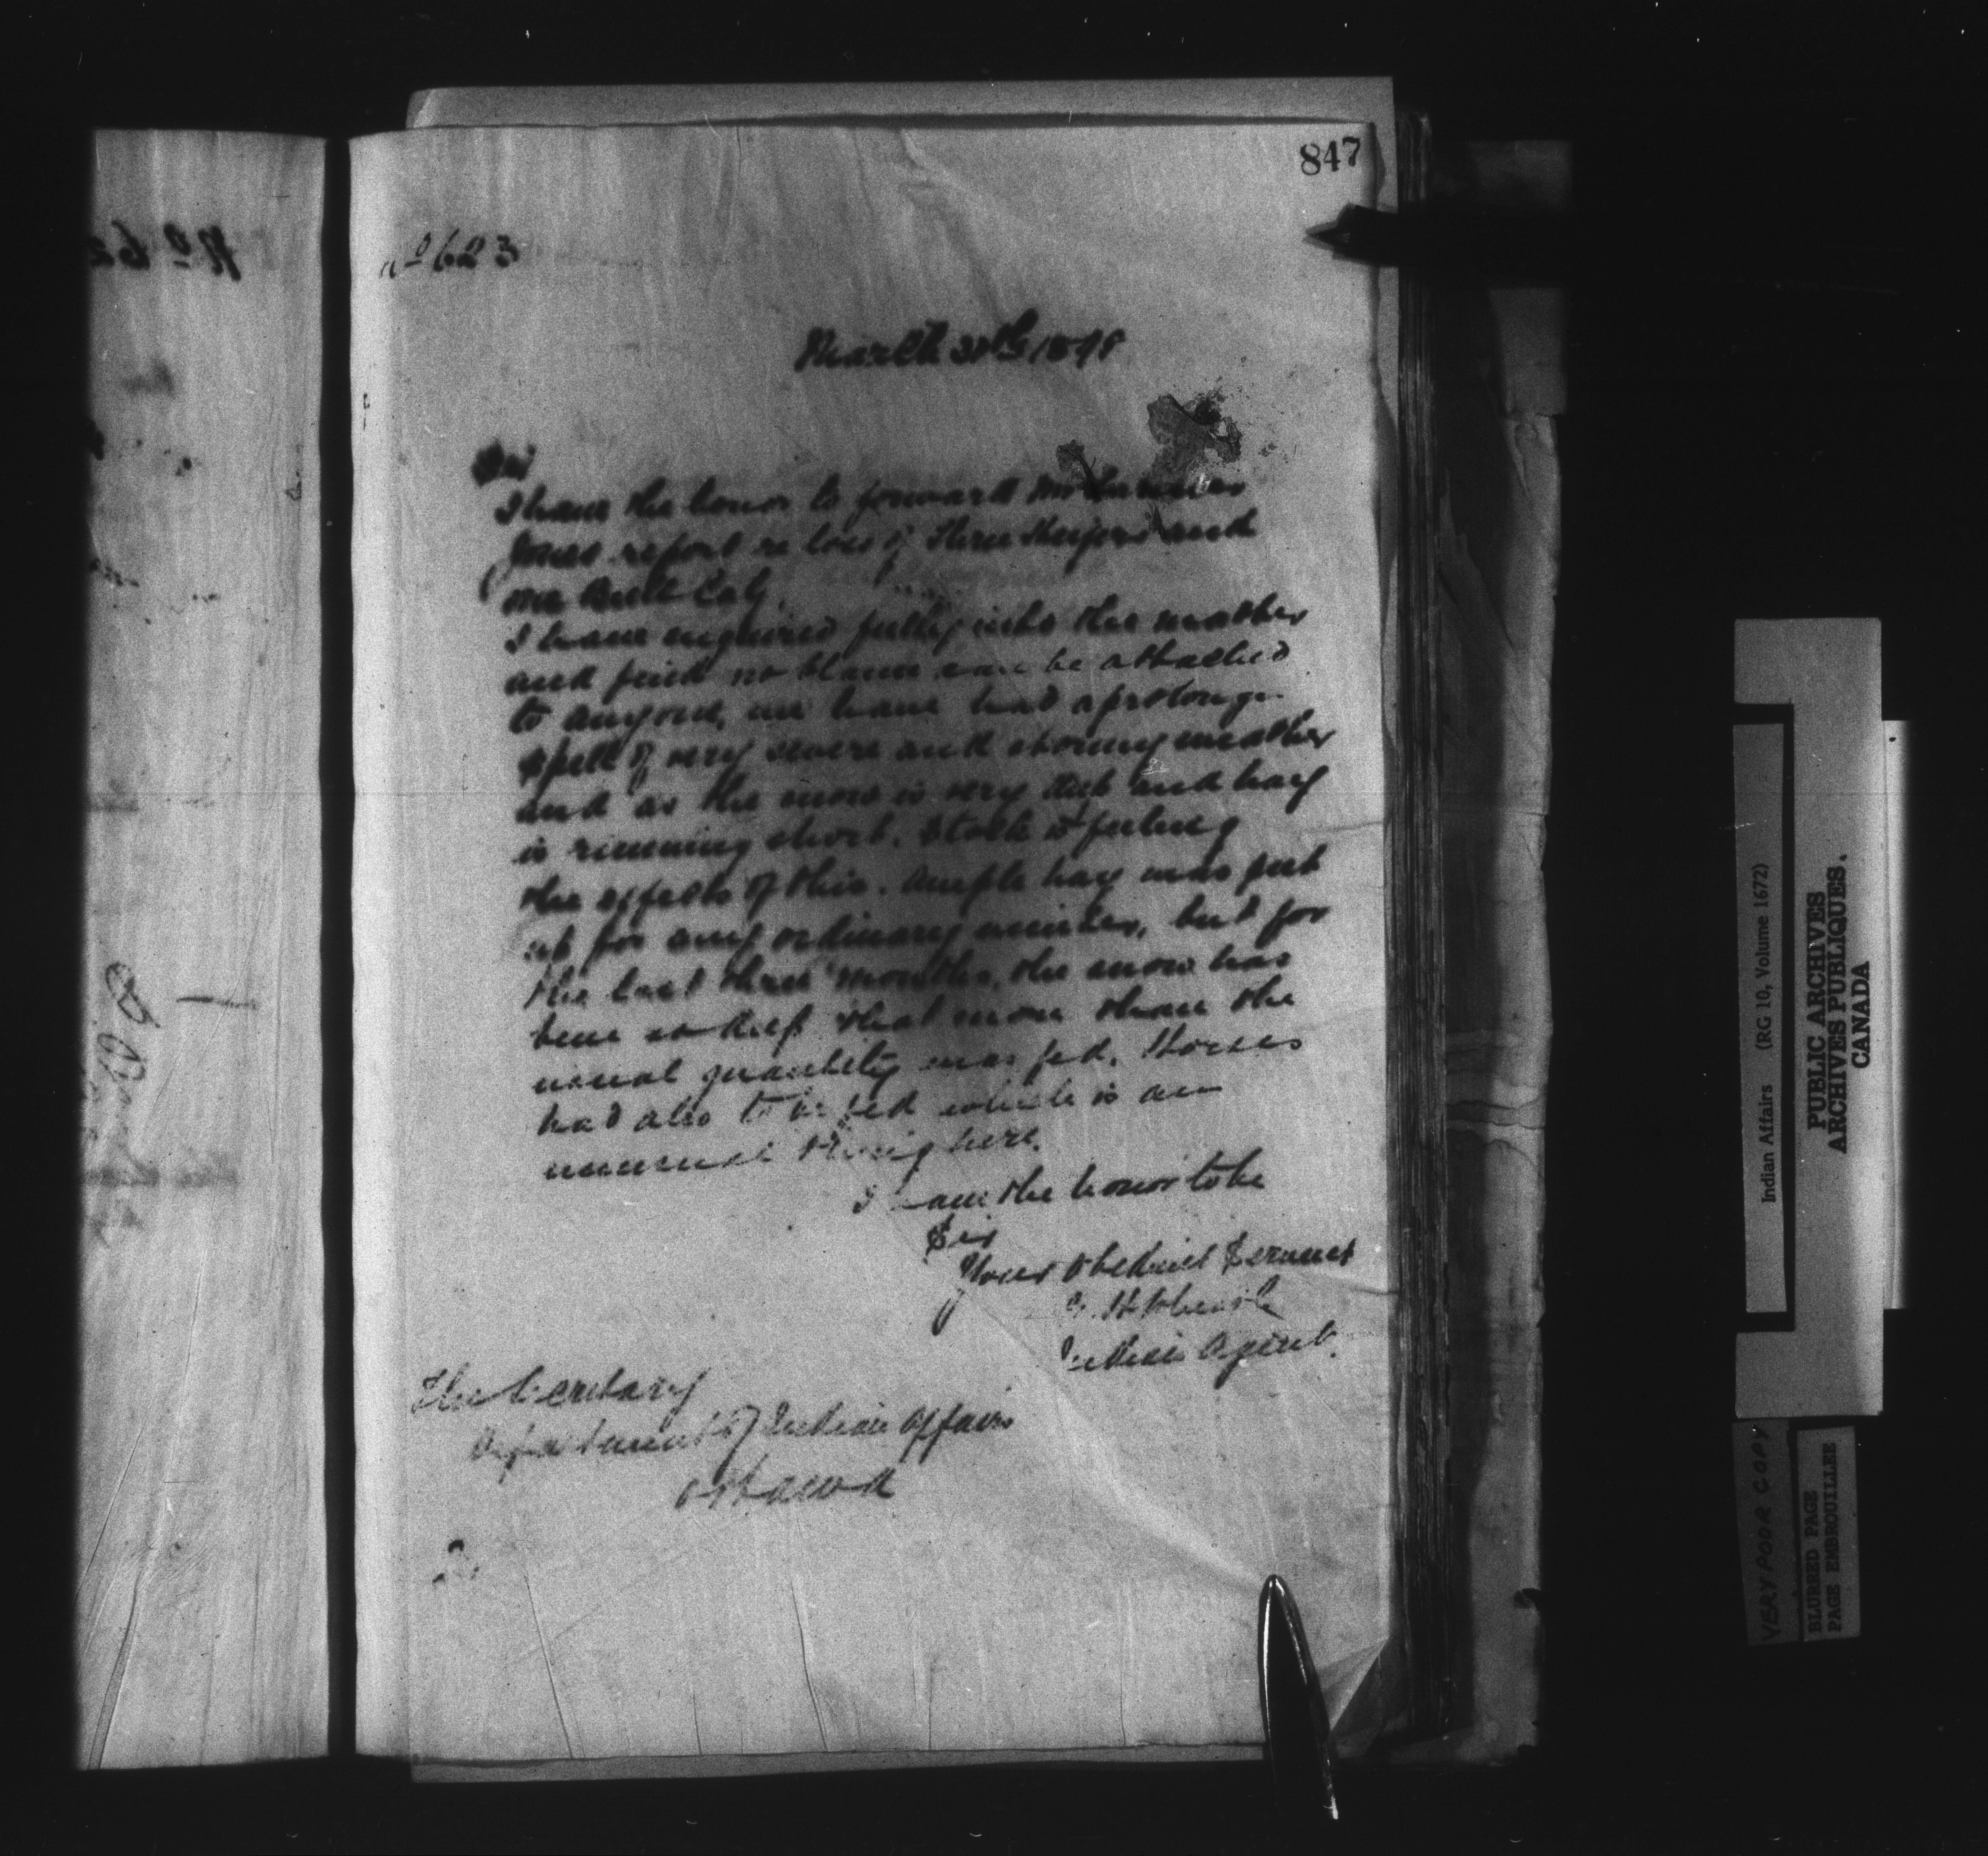 847
No 623
March 30th 1898
Sir
I have the honor to forward Mr
Jones report re loss of Three Heifers and
one Bull Calf.
I have enquired fully into the matter
and find no blame can be attached
to anyone, we have had a prolonge
spell of very severe and stormy weather
and as the snow is very deep and hay
is running short. Stock is feeling
the effects of this. Ample hay was put
up for any ordinary winter, but for
the last three months, the snow has
been so deep that more than the
usual quantity was fed. Horses
had also to be fed which is an
unusual thing here.
I have the honor to be
Sir
Your Obedient Servant
Indian Agent.
The Secretary
Department of Indian Affairs
Ottawa
Indian Affairs (RG 10, Volume 1672)
PUBLIC ARCHIVES
ARCHIVES PUBLIQUES
CANADA
VERY POOR COPY
BLURRED PAGE
PAGE EMBROUILLEE